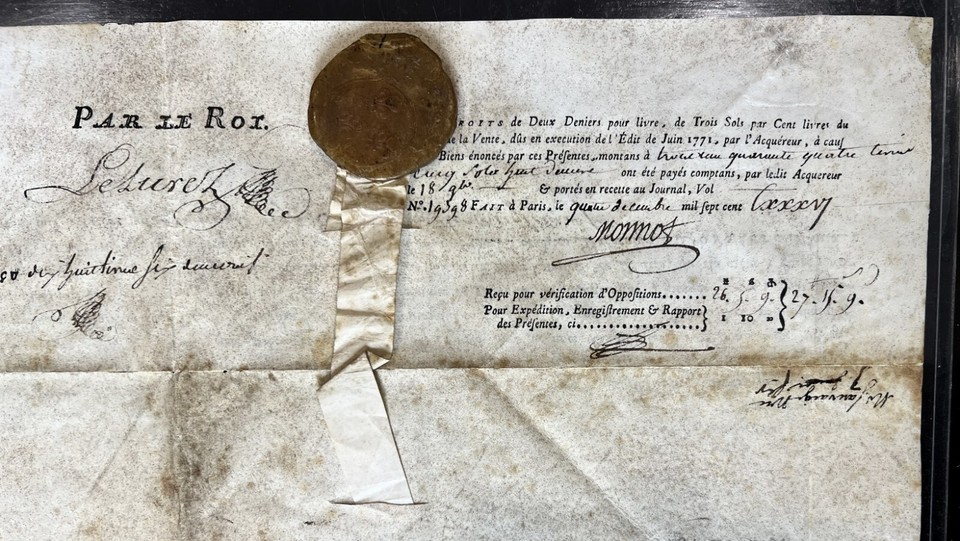 PAR LE ROI.
ROITS de Deux Deniers pour livre, de Trois Sols par Cent livres du
e la Vente, dûs en execution de l'Édit de Juin 1771, par l'Acquéreur, à cauf
Biens énoncés par ces Préfentes, montans à trois cens quarante quatre livres
cinq Sols huit deniers ont été payés comptans, par ledit Acquereur
le 18 9bre & portés en recette au Journal, Vol
N°. 19598 FAIT à Paris, le quatre decembre mil fept cent lxxxvj
Monnot
Reçu pour vérification d'Oppofitions....... 26. 5. 9.
Pour Expédition, Enregiftrement & Rapport
des Préfentes, ci.................... 1 10 » 27. 15. 9.